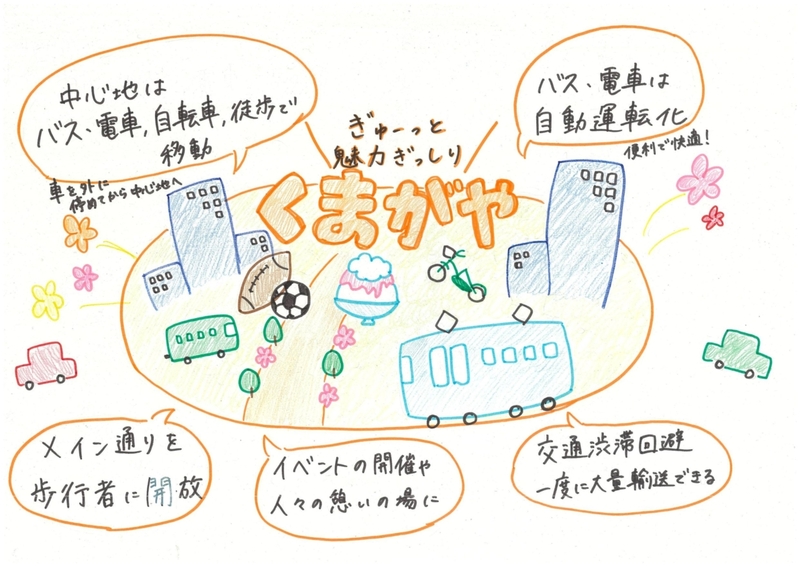 中心地は
バス、電車,自転車,徒歩で
移動
車を外に
停めてから中心地へ
ぎゅーっと
魅力ぎっしり
くまがや
バス、電車は
自動運転化
便利で快適!
メイン通りを
歩行者に開放
イベントの開催や
人々の憩いの場に
交通渋滞回避
一度に大量輸送できる